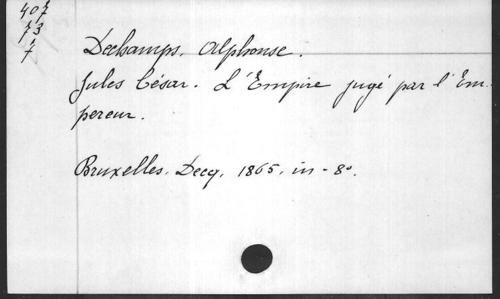 407
73
7
Dechamps. Alphonse.
Jules César. L'Empire jugé par l'Em-
pereur.
Bruxelles. Decq. 1865, in-8°.